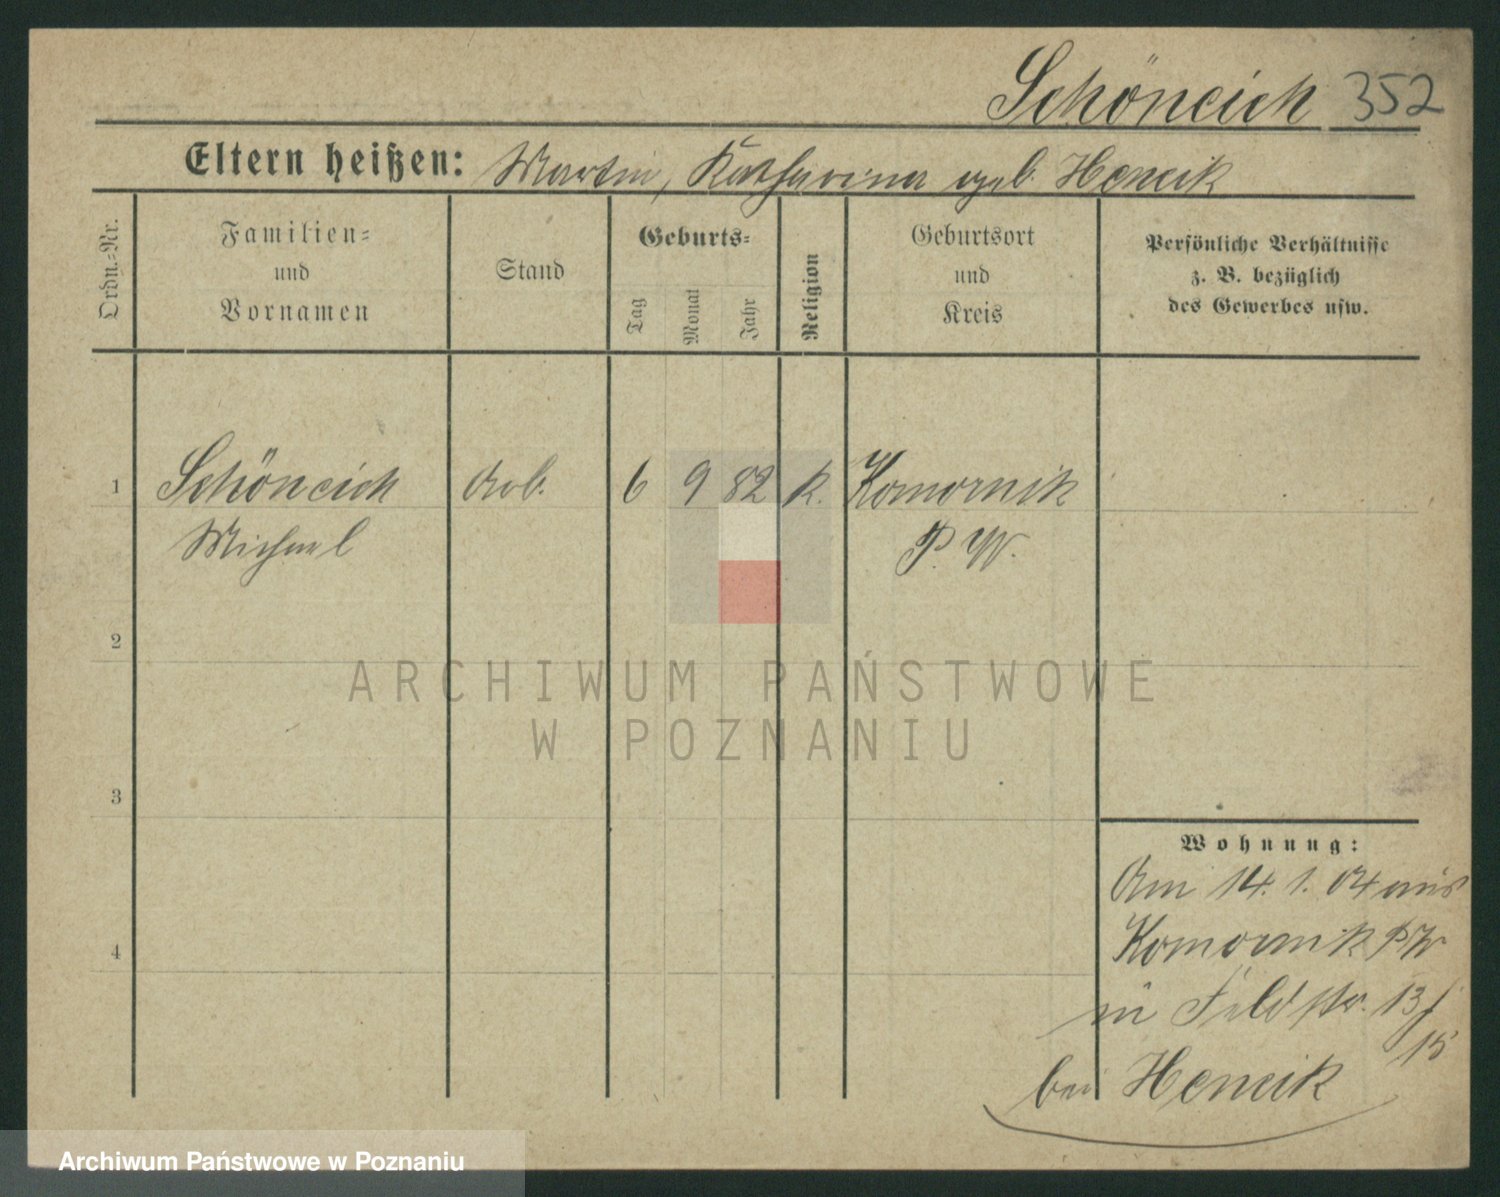 Schöneich 352
Eltern heißen: Martin, Katharina geb. Hencik
Ordn.=Nr.
Familien=
und
Vornamen
Stand
Geburts=
Tag
Monat
Jahr
Religion
Geburtsort
und
Kreis
Persönliche Verhältnisse
z. B. bezüglich
des Gewerbes usw.
1 Schöneich Arb. 6 9 82 k. Komornik
Michael P. W.
2
3
4
Wohnung:
Am 14. 1. 04 aus
Komornik P. W
in Feldstr. 13/
15
bei Hencik
ARCHIWUM PAŃSTWOWE
W POZNANIU
Archiwum Państwowe w Poznaniu